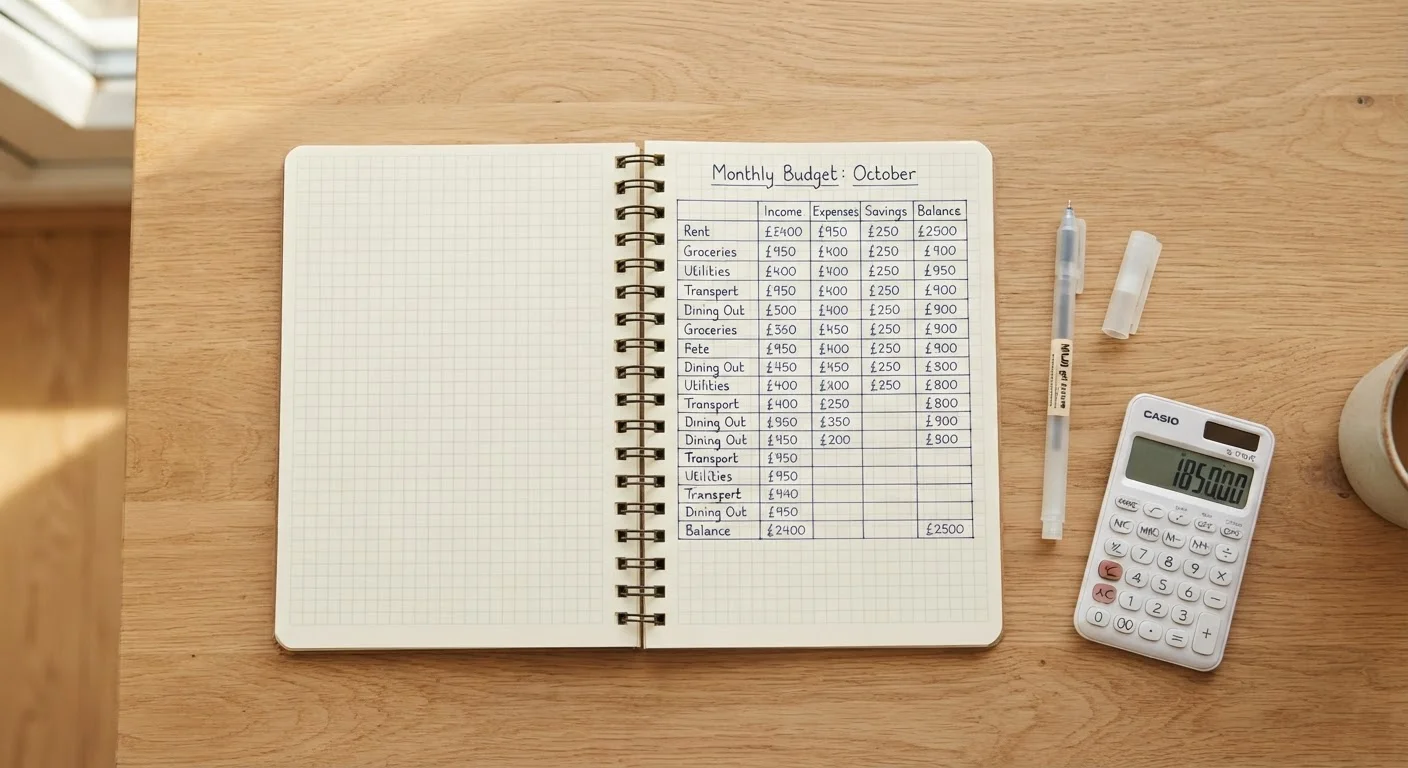 Monthly Budget: October
Income Expenses Savings Balance
Rent £950 £250 £2500
Groceries £950 £400 £250 £900
Utilities £400 £400 £250 £950
Transport £950 £400 £250 £900
Dining Out £500 £400 £250 £900
Groceries £360 £450 £250 £900
Fete £950 £400 £250 £900
Dining Out £450 £450 £250 £300
Utilities £400 £250 £800
Transport £400 £250 £800
Dining Out £950 £350 £900
Dining Out £450 £200 £300
Transport £950
Utilities £950
Transfert £940
Dining Out £950
Balance £2400 £2500
CASIO
7 8 9 ×
4 5 6 −
1 2 3 +
0 00 . =